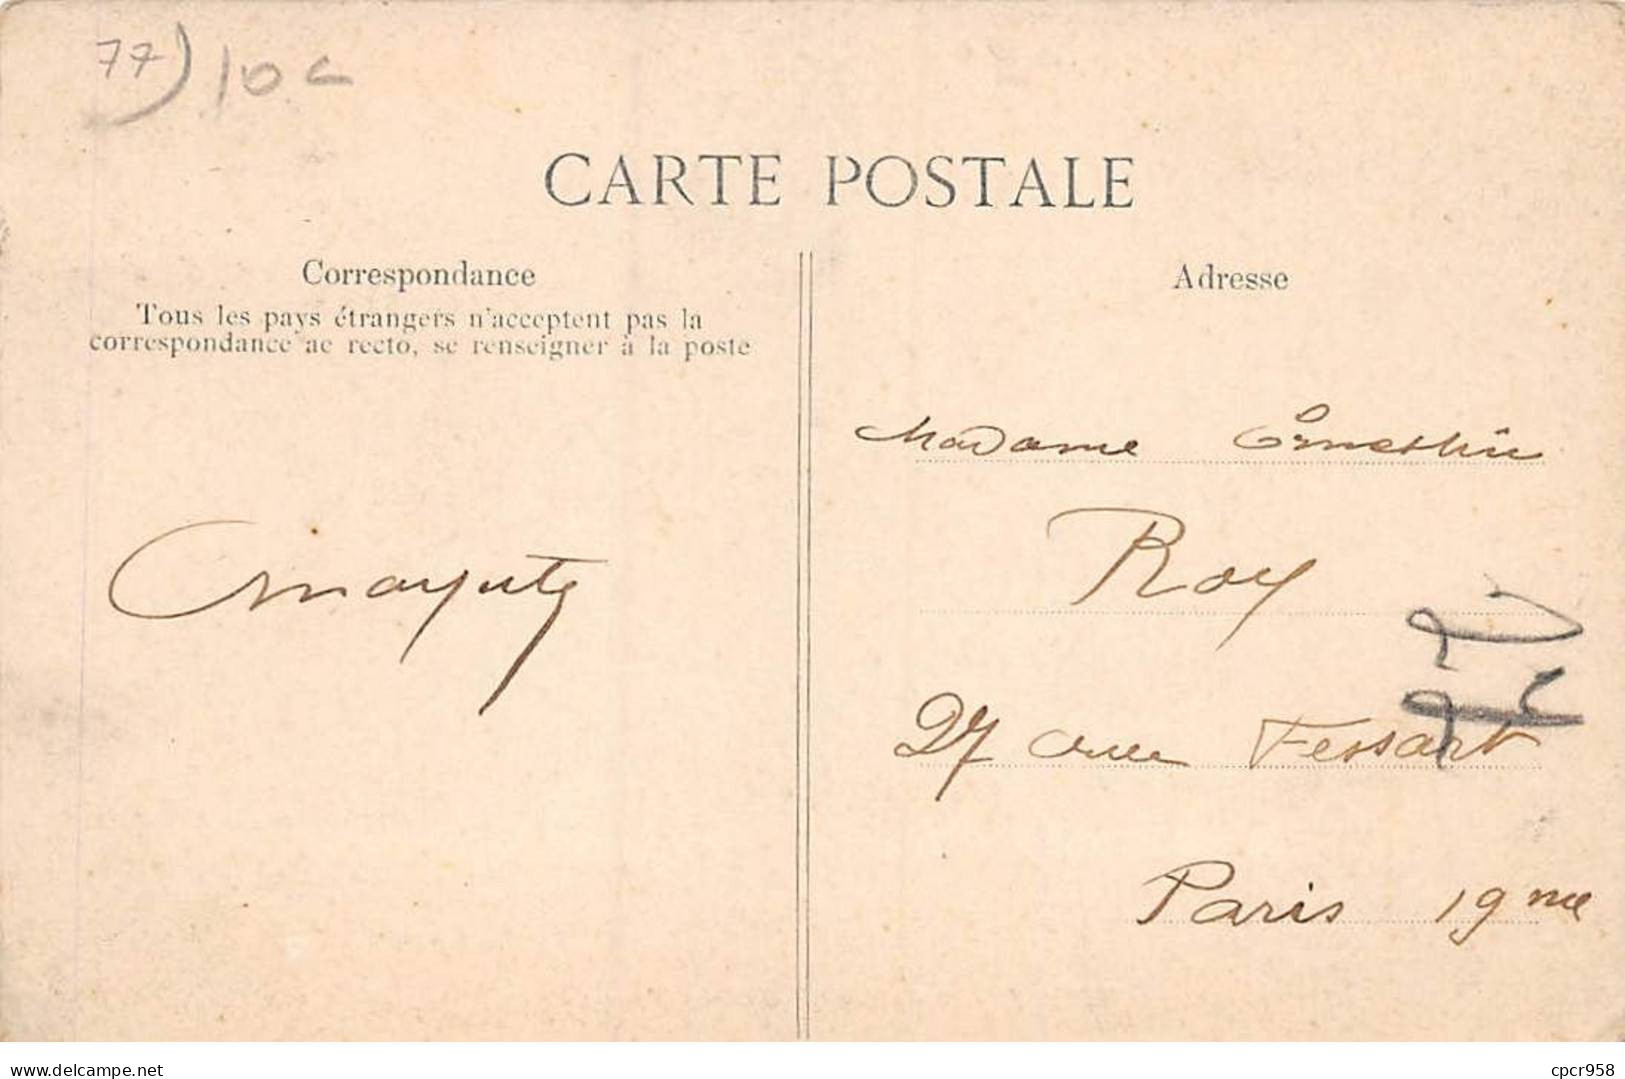 77) 10 c
CARTE POSTALE
Correspondance
Tous les pays étrangers n'acceptent pas la
correspondance ae recto, se renseigner à la poste
Adresse
Madame Ernestine
Roy
27 rue Fessart
Paris 19me
www.delcampe.net
cpcr958